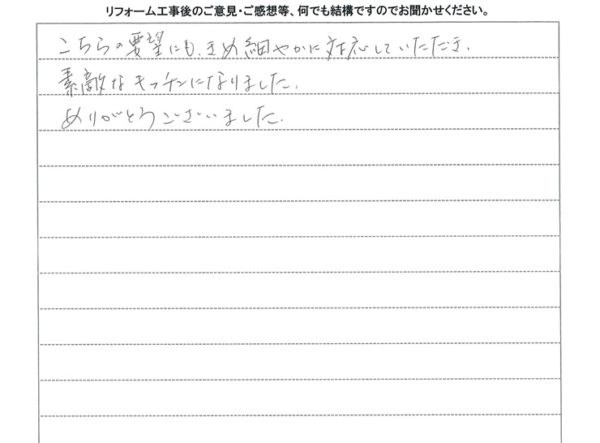 リフォーム工事後のご意見・ご感想等、何でも結構ですのでお聞かせください。
こちらの要望にも、きめ細やかに対応していただき、
素敵なキッチンになりました。
ありがとうございました。